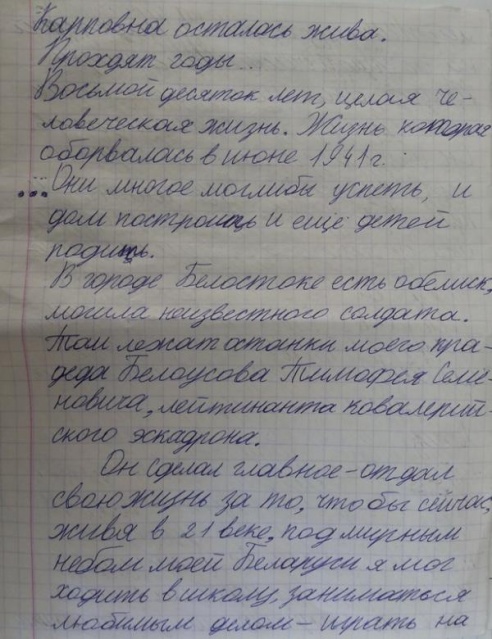 Карповна осталась жива.
Проходят годы...
Восьмой десяток лет, целая че-
ловеческая жизнь. Жизнь которая
оборвалась в июне 1941 г.
...Они многое моглибы успеть, и
дом построить и ещё детей
родить.
В городе Белостоке есть обелиск,
могила неизвестного солдата.
Там лежат останки моего пра-
деда Белоусова Тимофея Семё-
новича, лейтинанта ковалерий-
ского эскадрона.
Он сделал главное – отдал
свою жизнь за то, что бы сейчас,
живя в 21 веке, под мирным
небом моей Беларуси я мог
ходить в школу, заниматься
любимым делом – играть на